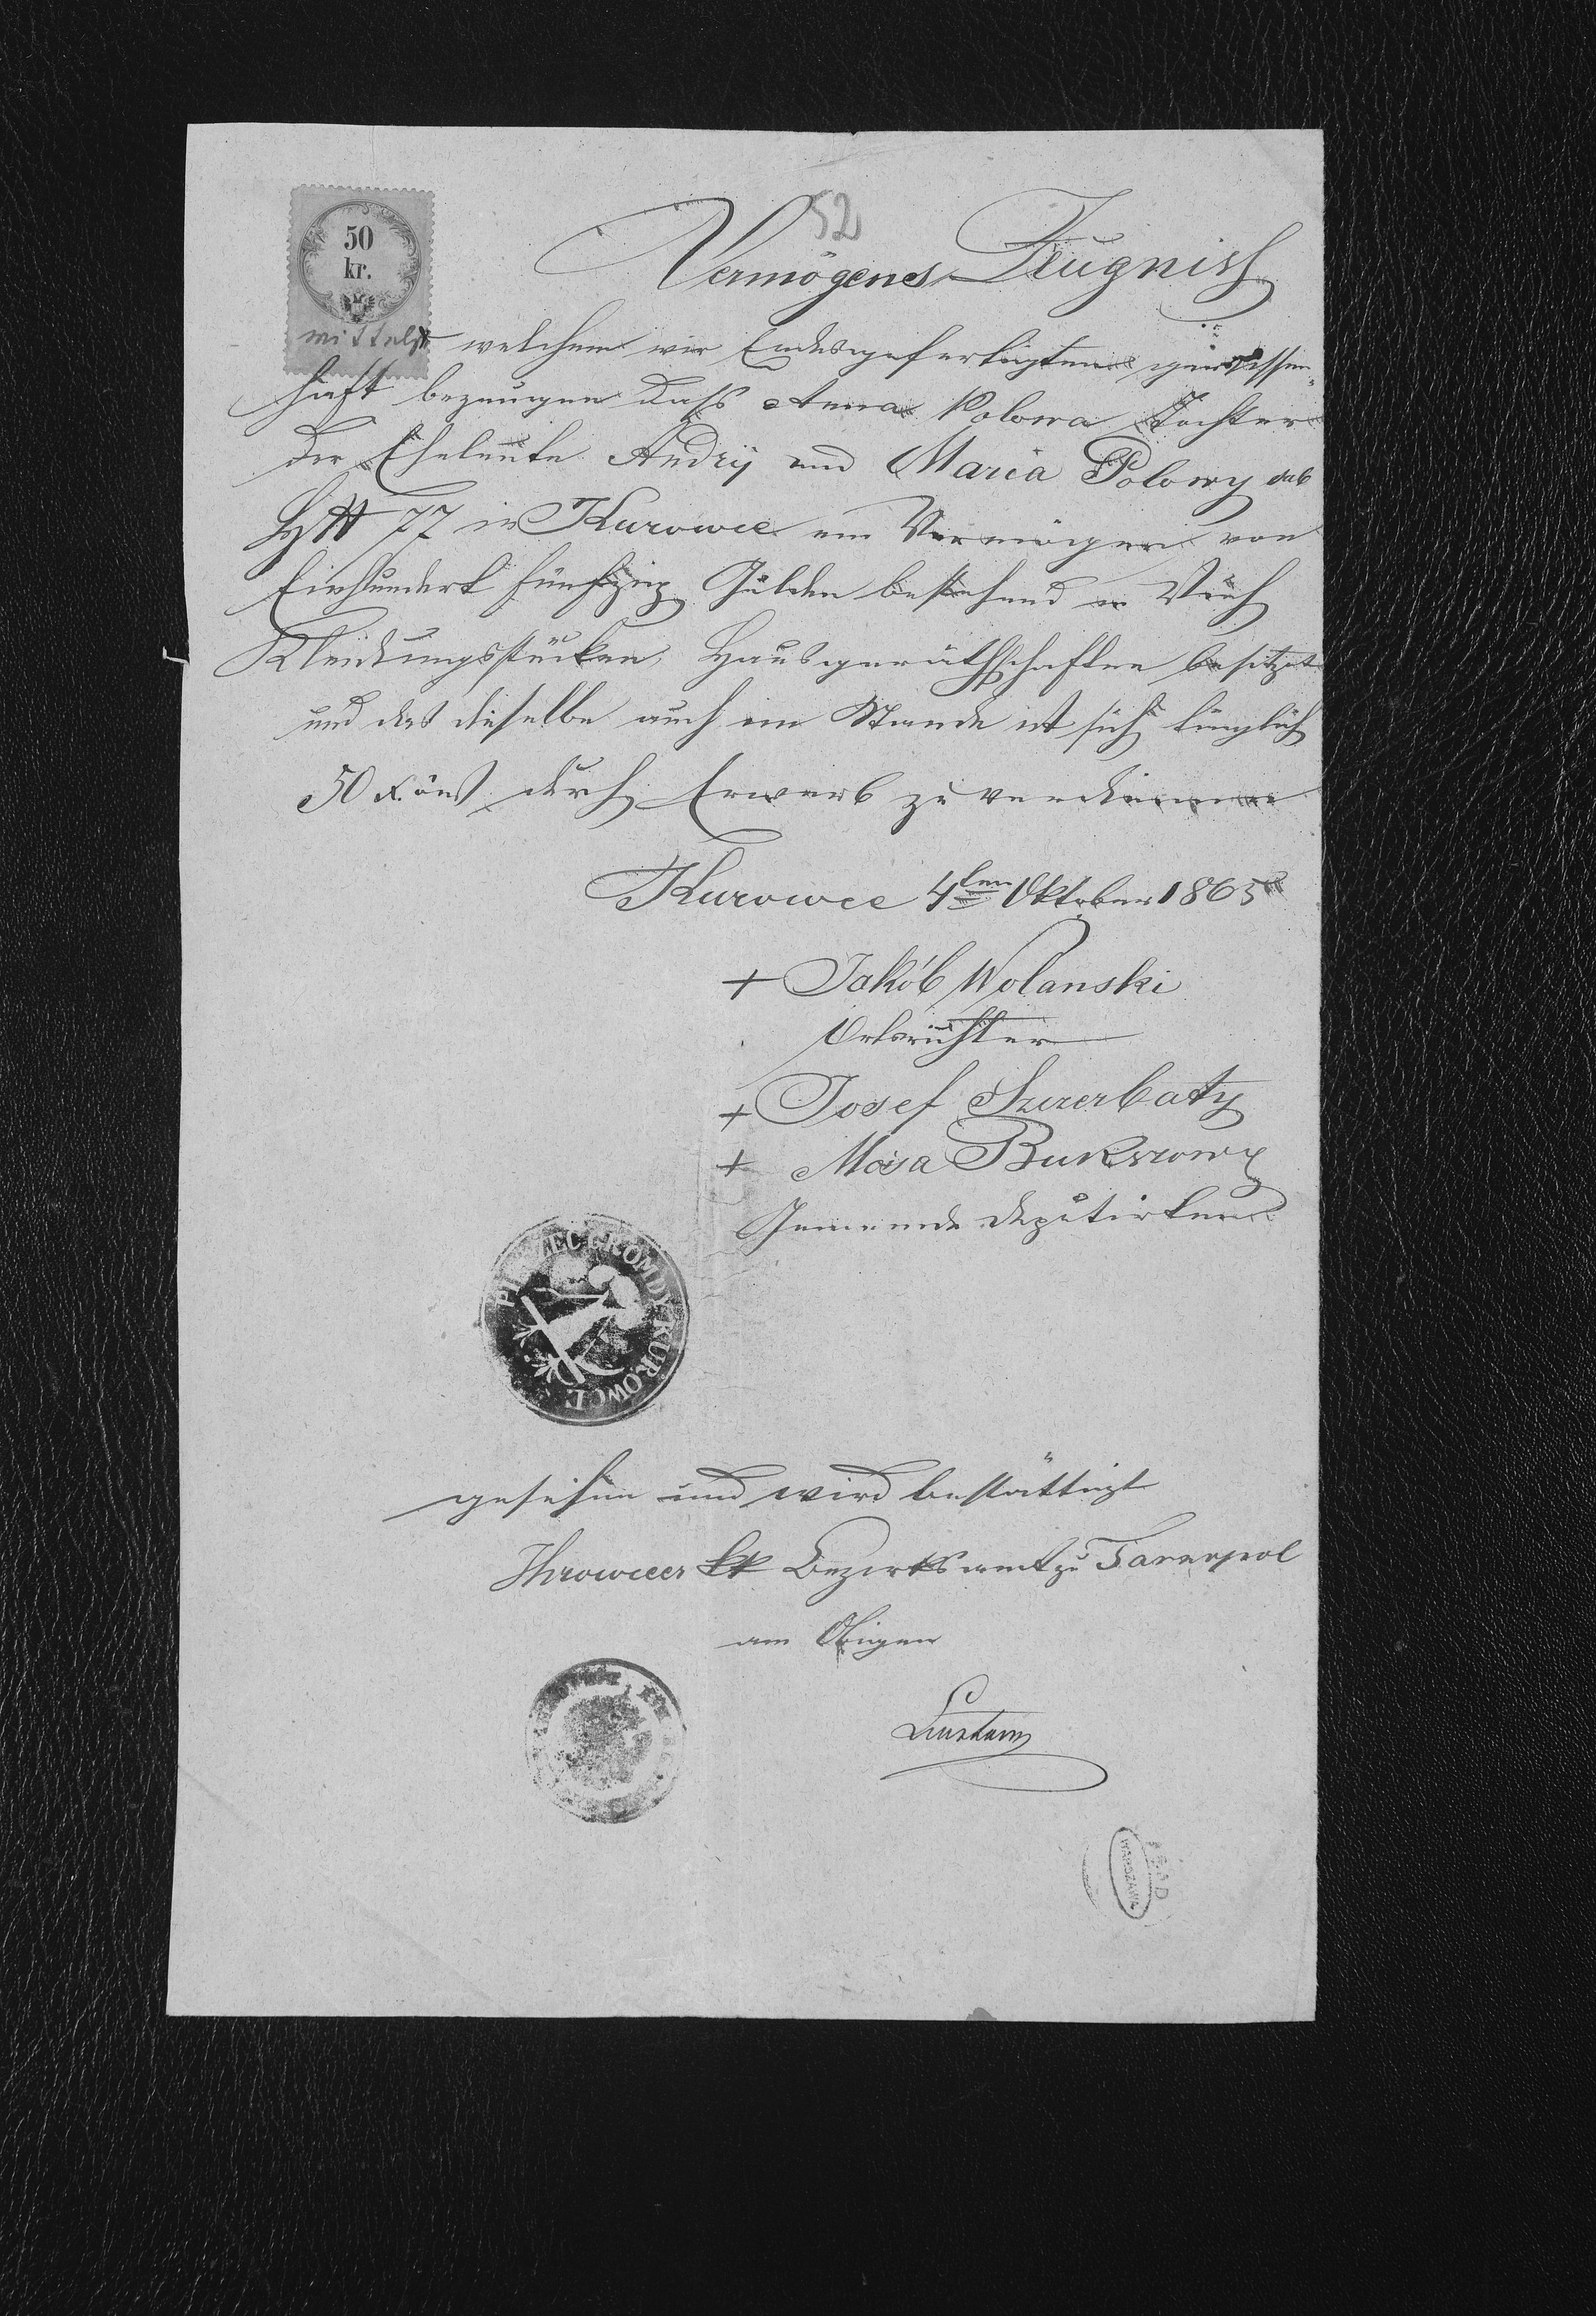 52
50
kr.
Vermögens Zeugniss
mittelst welchem wir Endesgefertigten gewissen„
haft bezeugen daß Anna Polowa Tochter
der Eheleute Andrij und Maria Polowy sub
HN 77 in Kurowce ein Vermögen von
Einhundert fünfzig Gulden bestehend in Vieh
Kleidungsstücken, Hausgeräthschaften besitzt
und daß dieselbe auch im Stande ist sich
50 x öW durch Erwerb zu verdienen
Kurowce 4ten Oktober 1865
+ Jakób Wolanski
Ortsrichter
+ Josef Szczerbaty
+ Mosa
Gemeinde Deputirten
PIECZEC GROMDY KUROWCE
gesehen und wird bestättigt
kk Bezirksamt zu Tarnopol
am Obigen
AGAD
WARSZAWA